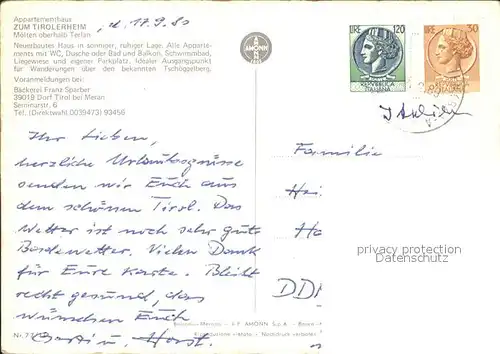 Appartementhaus , d. 17.9.80
ZUM TIROLERHEIM
Mölten oberhalb Terlan
Neuerbautes Haus in sonniger, ruhiger Lage; Alle Apparte-
ments mit WC, Dusche oder Bad und Balkon, Schwimmbad,
Liegewiese und eigener Parkplatz. Idealer Ausgangspunkt
für Wanderungen über den bekannten Tschögglberg.
Voranmeldungen bei:
Bäckerei Franz Sparber
39019 Dorf Tirol bei Meran
Seminarstr. 6
Tel. (Direktwahl 0039473) 93456
AMONN
LIRE 120
REPVBBLICA
ITALIANA
LIRE 30
REPVBBLICA
ITALIANA
Italien
Ihr Lieben,
herzliche Urlaubsgrüsse
senden wir Euch aus
dem schönen Tirol. Das
Wetter ist noch sehr gutes
Badewetter. Vielen Dank
für Eure Karte. Bleibt
recht gesund, das
wünschen Euch
u. Horst.
Familie
Hei
Ha
DDR
privacy protection
REMOVED
AMONN S.p.A.